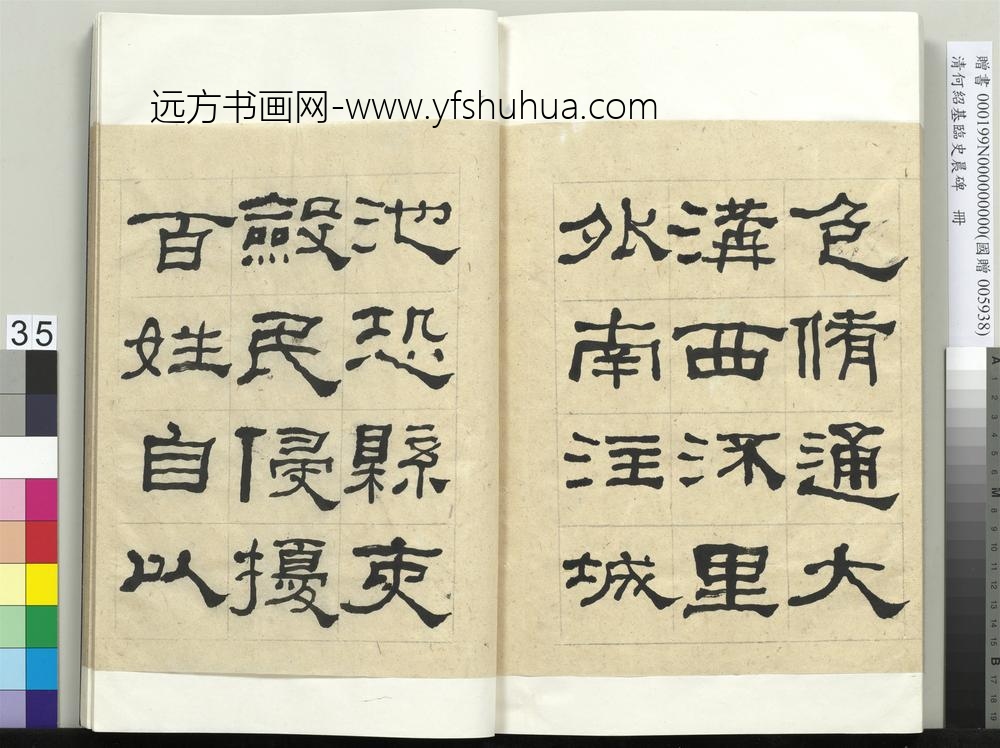 远方书画网-www.yfshuhua.com
色脩通大
溝西流里
外南注城
池恐縣吏
斂民侵擾
百姓自以
贈書 000199N000000000(國贈 005938)
清何紹基臨史晨碑 冊
35